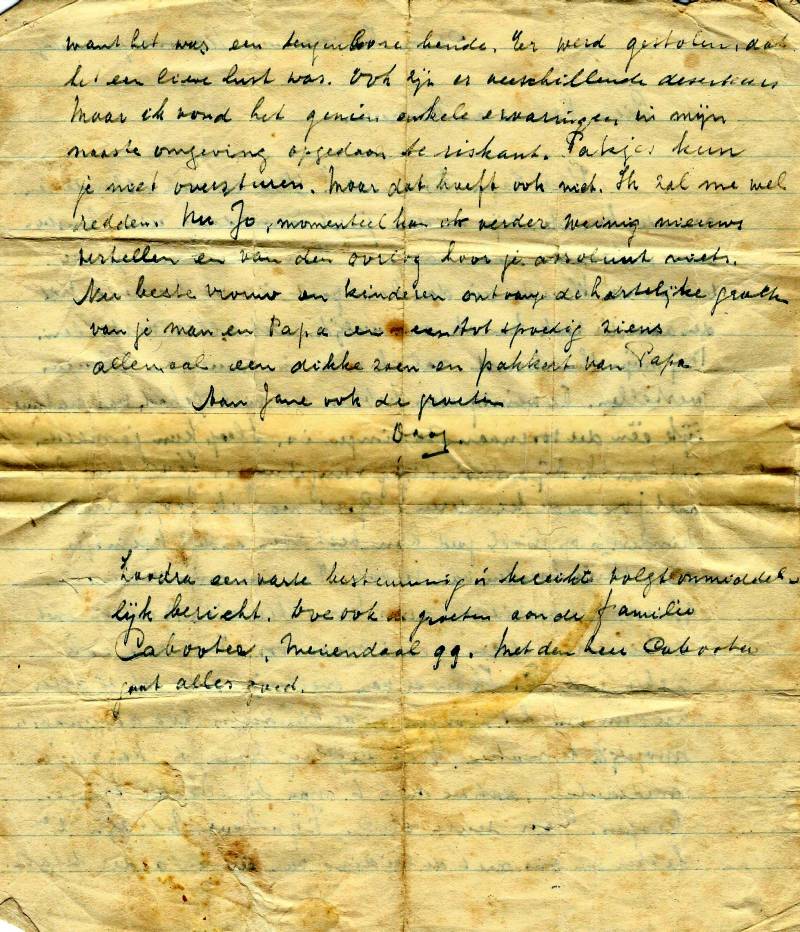 want het was een teugelloose bende. Er werd gestolen, dat
het een lieve lust was. Ook zijn er verschillende deserteurs
Maar ik vond het gezien enkele ervaringen in mijn
naaste omgeving opgedaan te riskant. Pakjes kun
je niet oversturen. Maar dat hoeft ook niet. Ik zal me wel
redden. Nu Jo, momenteel kan ik verder weinig nieuws
vertellen en van den oorlog hoor je absoluut niets.
Nu beste vrouw en kinderen ontvang de hartelijke groeten
van je man en Papa en een tot spoedig ziens
allemaal een dikke zoen en pakkert van Papa
Aan Jane ook de groeten
Daag
Zoodra een vaste bestemming is bereikt volgt onmiddel-
lijk bericht. Doe ook de groeten aan de familie
Cabooter, Meiendaal 99. Met den heer Cabooter
gaat alles goed.